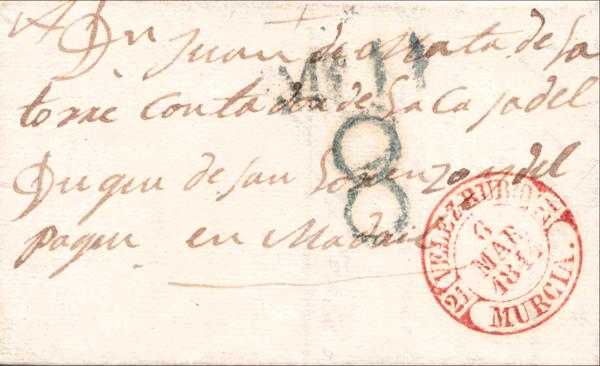 A Dn Juan de de la
torre Contador de la Casa del
Duque de San Lorenzo y del
paque en Madrid
8
VELEZ-RUBIO
6
MAR
MURCIA.